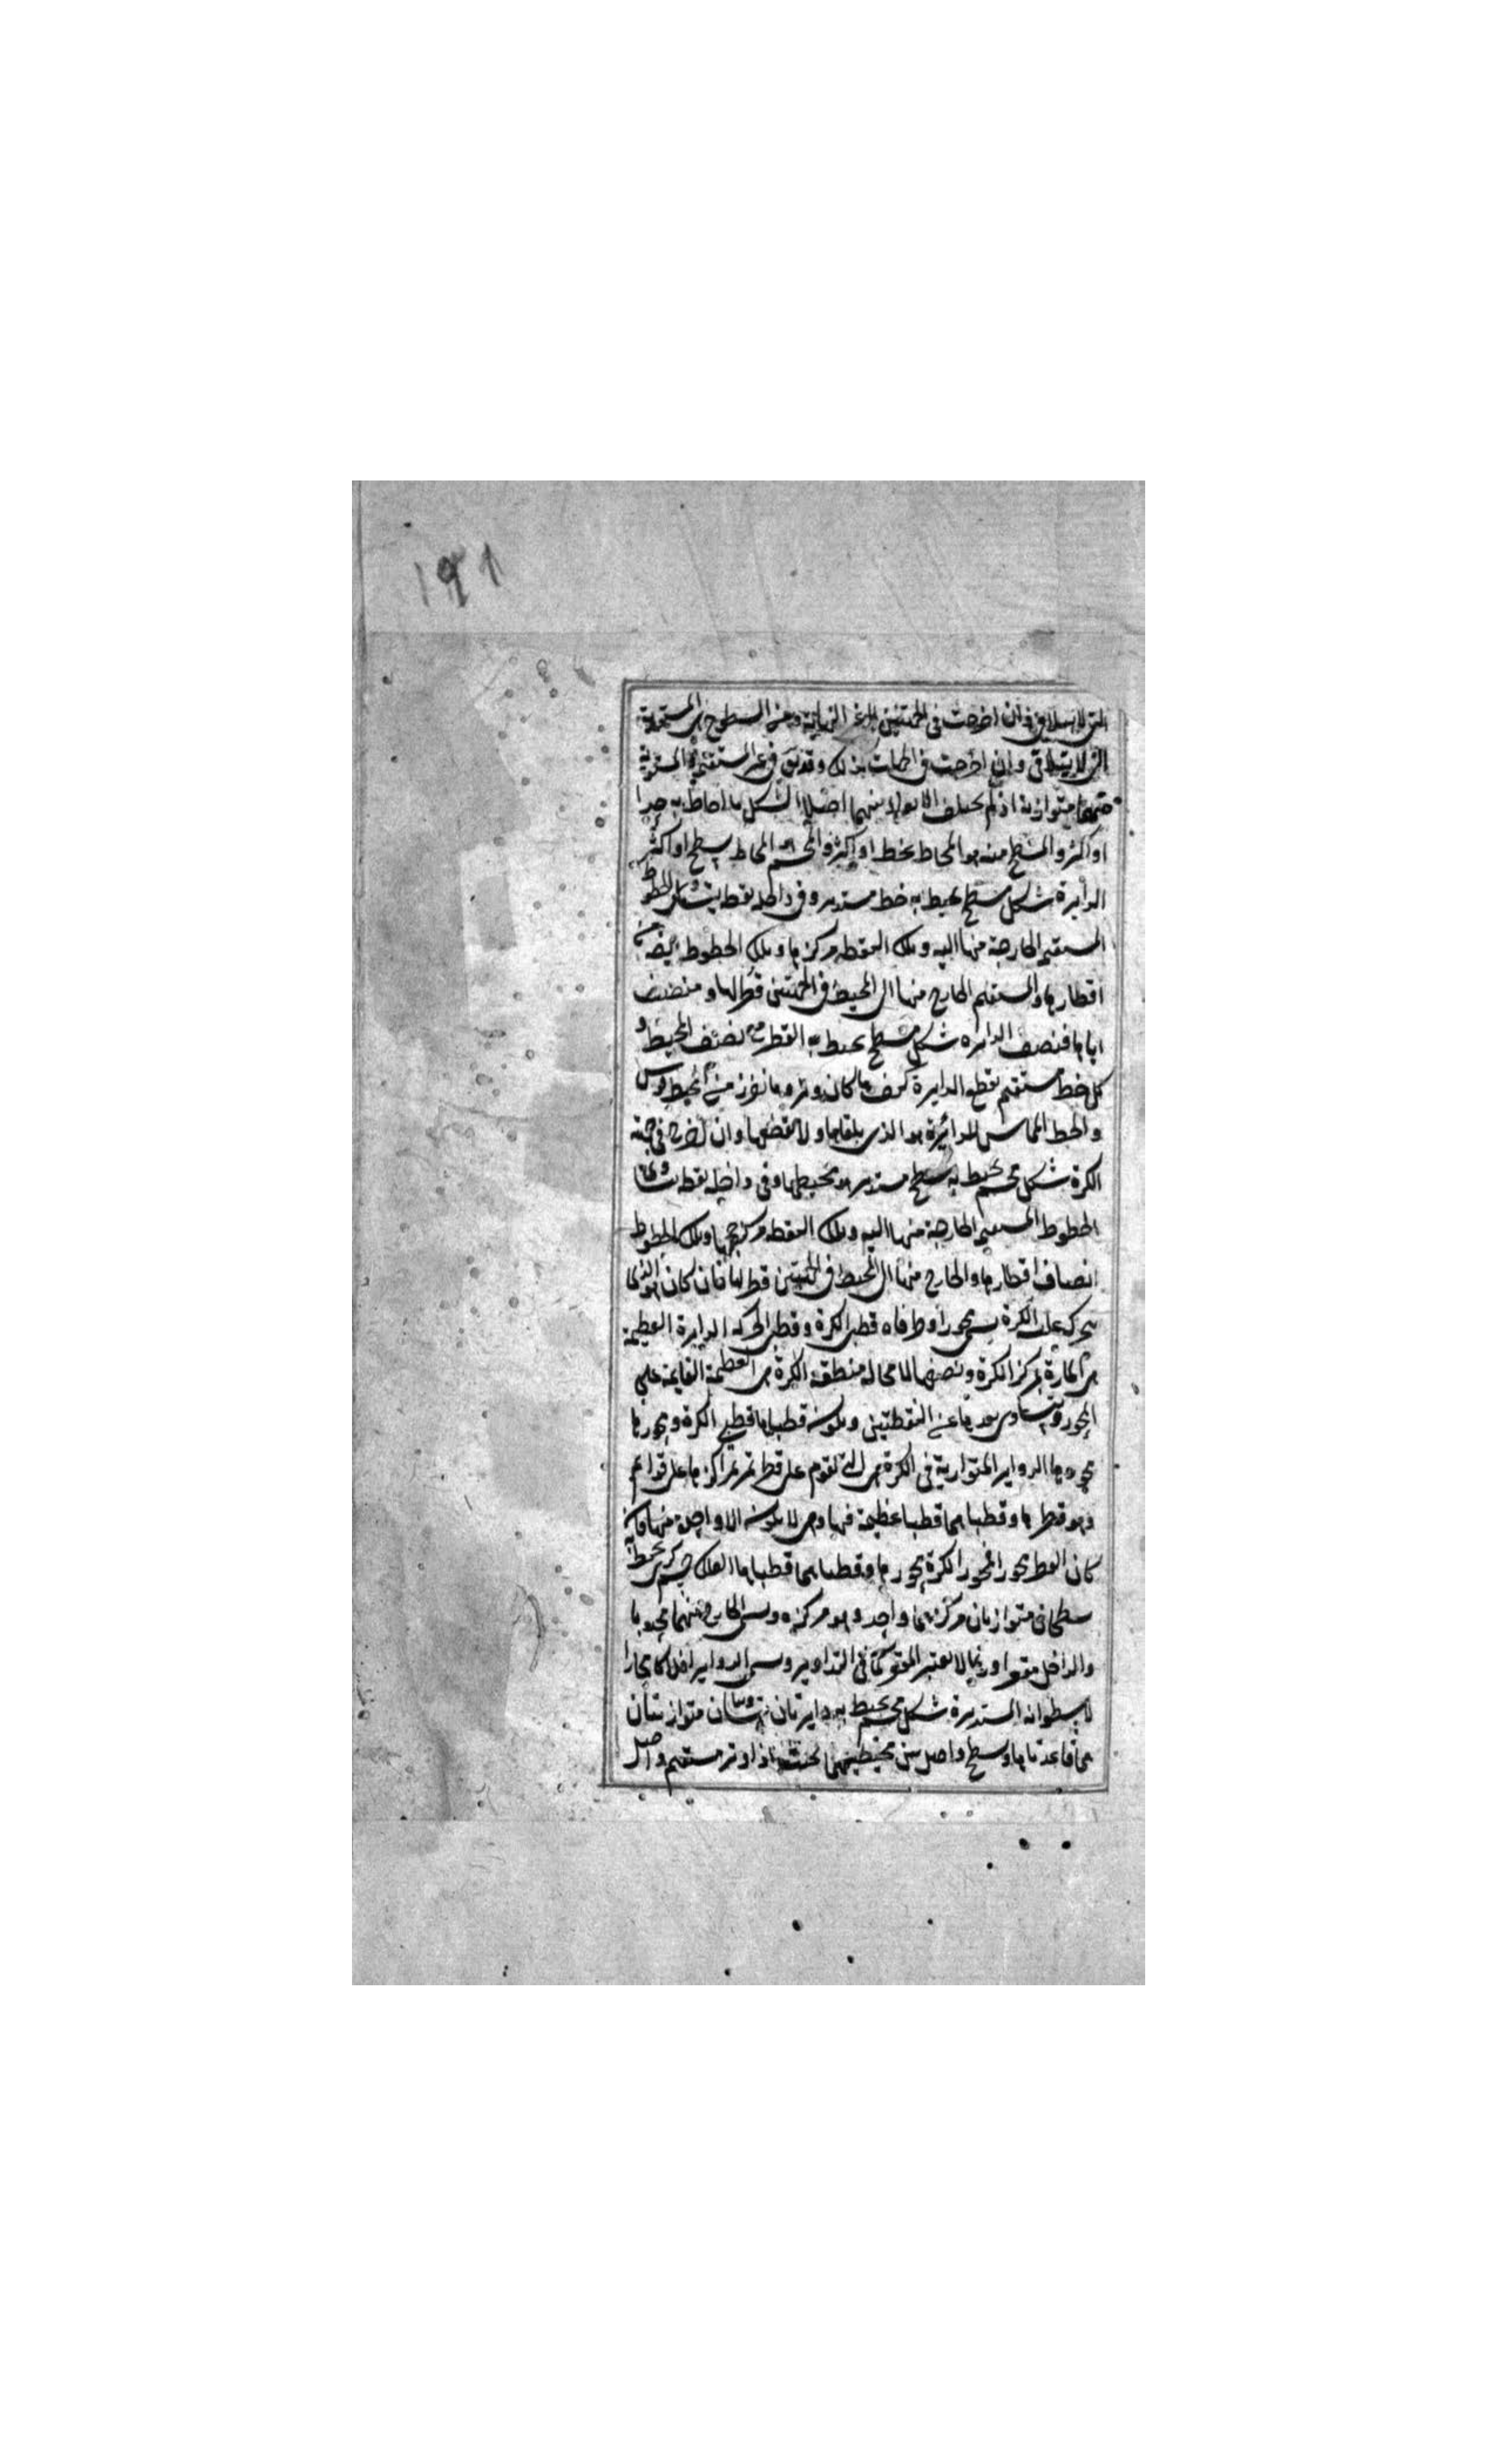 ١٩١
التي لا يتلاقى وان اخرجت في الجهتين الى غير النهاية ومن السطوح هي المستوية
التي لا يتلاقى وان اخرجت في الجهات كذلك وقد يق في غير المستقيمة والمستوية
متوازية اذ لم يختلف الابعاد بينهما اصلا الشكل ما احاط به حد
او اكثر والمسطح منه هو المحاط بخط او اكثر والمجسم المحاط بسطح او اكثر
الدايرة شكل مسطح يحيط به خط مستدير وفي داخله نقطة يتساوى الخطوط
المستقيمة الخارجة منها اليه وتلك النقطة مركزها وتلك الخطوط ايضا
اقطارها والمستقيم الخارج منها الى المحيط في الجهتين قطر لها ومنصف
اياها فنصف الدايرة شكل مسطح يحيط به القطر مع نصف المحيط و
كل خط مستقيم يقطع الدايرة كيف ما كان وتر وما نفرز من المحيط قوس
والخط المماس للدائرة هو الذي يلقاها ولا يقطعها وان اخرج في جهته
الكرة شكل مجسم يحيط به سطح مستدير هو محيطها وفي داخله نقطة يتساوى
الخطوط المستقيمة الخارجة منها اليه وتلك النقطة مركز حجمها وتلك الخطوط
انصاف اقطارها والخارج منها الى المحيط في الجهتين قطر لها فان كان هو الذي
يتحرك عليه الكرة يسمى محورا وطرفاه قطبي الكرة وقطبي الحركة الدايرة العظيمة
هي المارة بمركز الكرة وتنصفها لا محالة منطقة الكرة هي العظيمة القايمة على
المحور ويتساوى بعدها عن النقطتين ويكون قطباها قطبي الكرة ومحورها
محورها الدواير المتوازية في الكرة هي التي تقوم على قطر تمر بمراكزها على قوايم
وهو قطرها وقطباها قطبا عظيمة فيها وهي لا يكون الا واحدة منها فان
كان القطر محورا فمحور الكرة محورها وقطباها قطباها الفلك جسم كري يحيط به
سطحان متوازيان مركزهما واحد وهو مركزه ويسمى الخارج منهما محدبها
والداخل مقعرا وربما لا يعتبر المقعر كما في التداوير ويسمى الدواير افلاكا مجازا
الاسطوانة المستديرة شكل مجسم يحيط به دايرتان متساويتان متوازيتان
هما قاعدتاها وسطح واصل بين محيطيهما بحيث اذا ادير مستقيم واصل